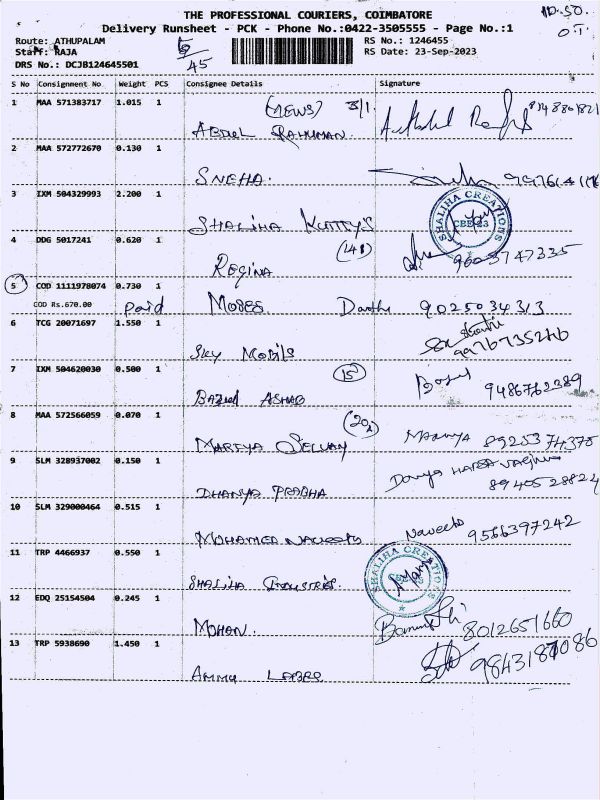 THE PROFESSIONAL COURIERS, COIMBATORE
10.50
Delivery Runsheet - PCK - Phone No.:0422-3505555 - Page No.:1
O.T.
Route: ATHUPALAM RS No.: 1246455
Staff: RAJA 45 RS Date: 23-Sep-2023
DRS No.: DCJB124645501
S No Consignment No Weight PCS Consignee Details Signature
1 MAA 571383717 1.015 1 (NEWS) 3/1
ABDUL RAHUMAN
2 MAA 572772670 0.130 1
SNEHA.
3 IXM 504329993 2.200 1
SHALIHA CREATIONS
CBE-23
SHALIHA KUTTYS
4 DDG 5017241 0.620 1 (141)
REGINA 9603747335
5 COD 1111978074 0.730 1
COD Rs.670.00 Paid MOSES 9025034313
6 TCG 20071697 1.550 1
SKY MOBILS 9976735246
7 IXM 504620030 0.500 1 15
BAZUL ASHAB 9486762389
8 MAA 572566059 0.070 1 (20)
MARIYA SELVAM 8925374375
9 SLM 328937002 0.150 1
DHANYA PRABHA 8940528824
10 SLM 329000464 0.515 1
MOHAMED NAVEETH Naveeth 9566397242
11 TRP 4466937 0.550 1
SHALIHA CREATIONS
SHALIHA INDUSTRIES.
12 EDQ 25154504 0.245 1
MOHAN. 8012651660
13 TRP 5938690 1.450 1
AMMU LABEL 9843187086